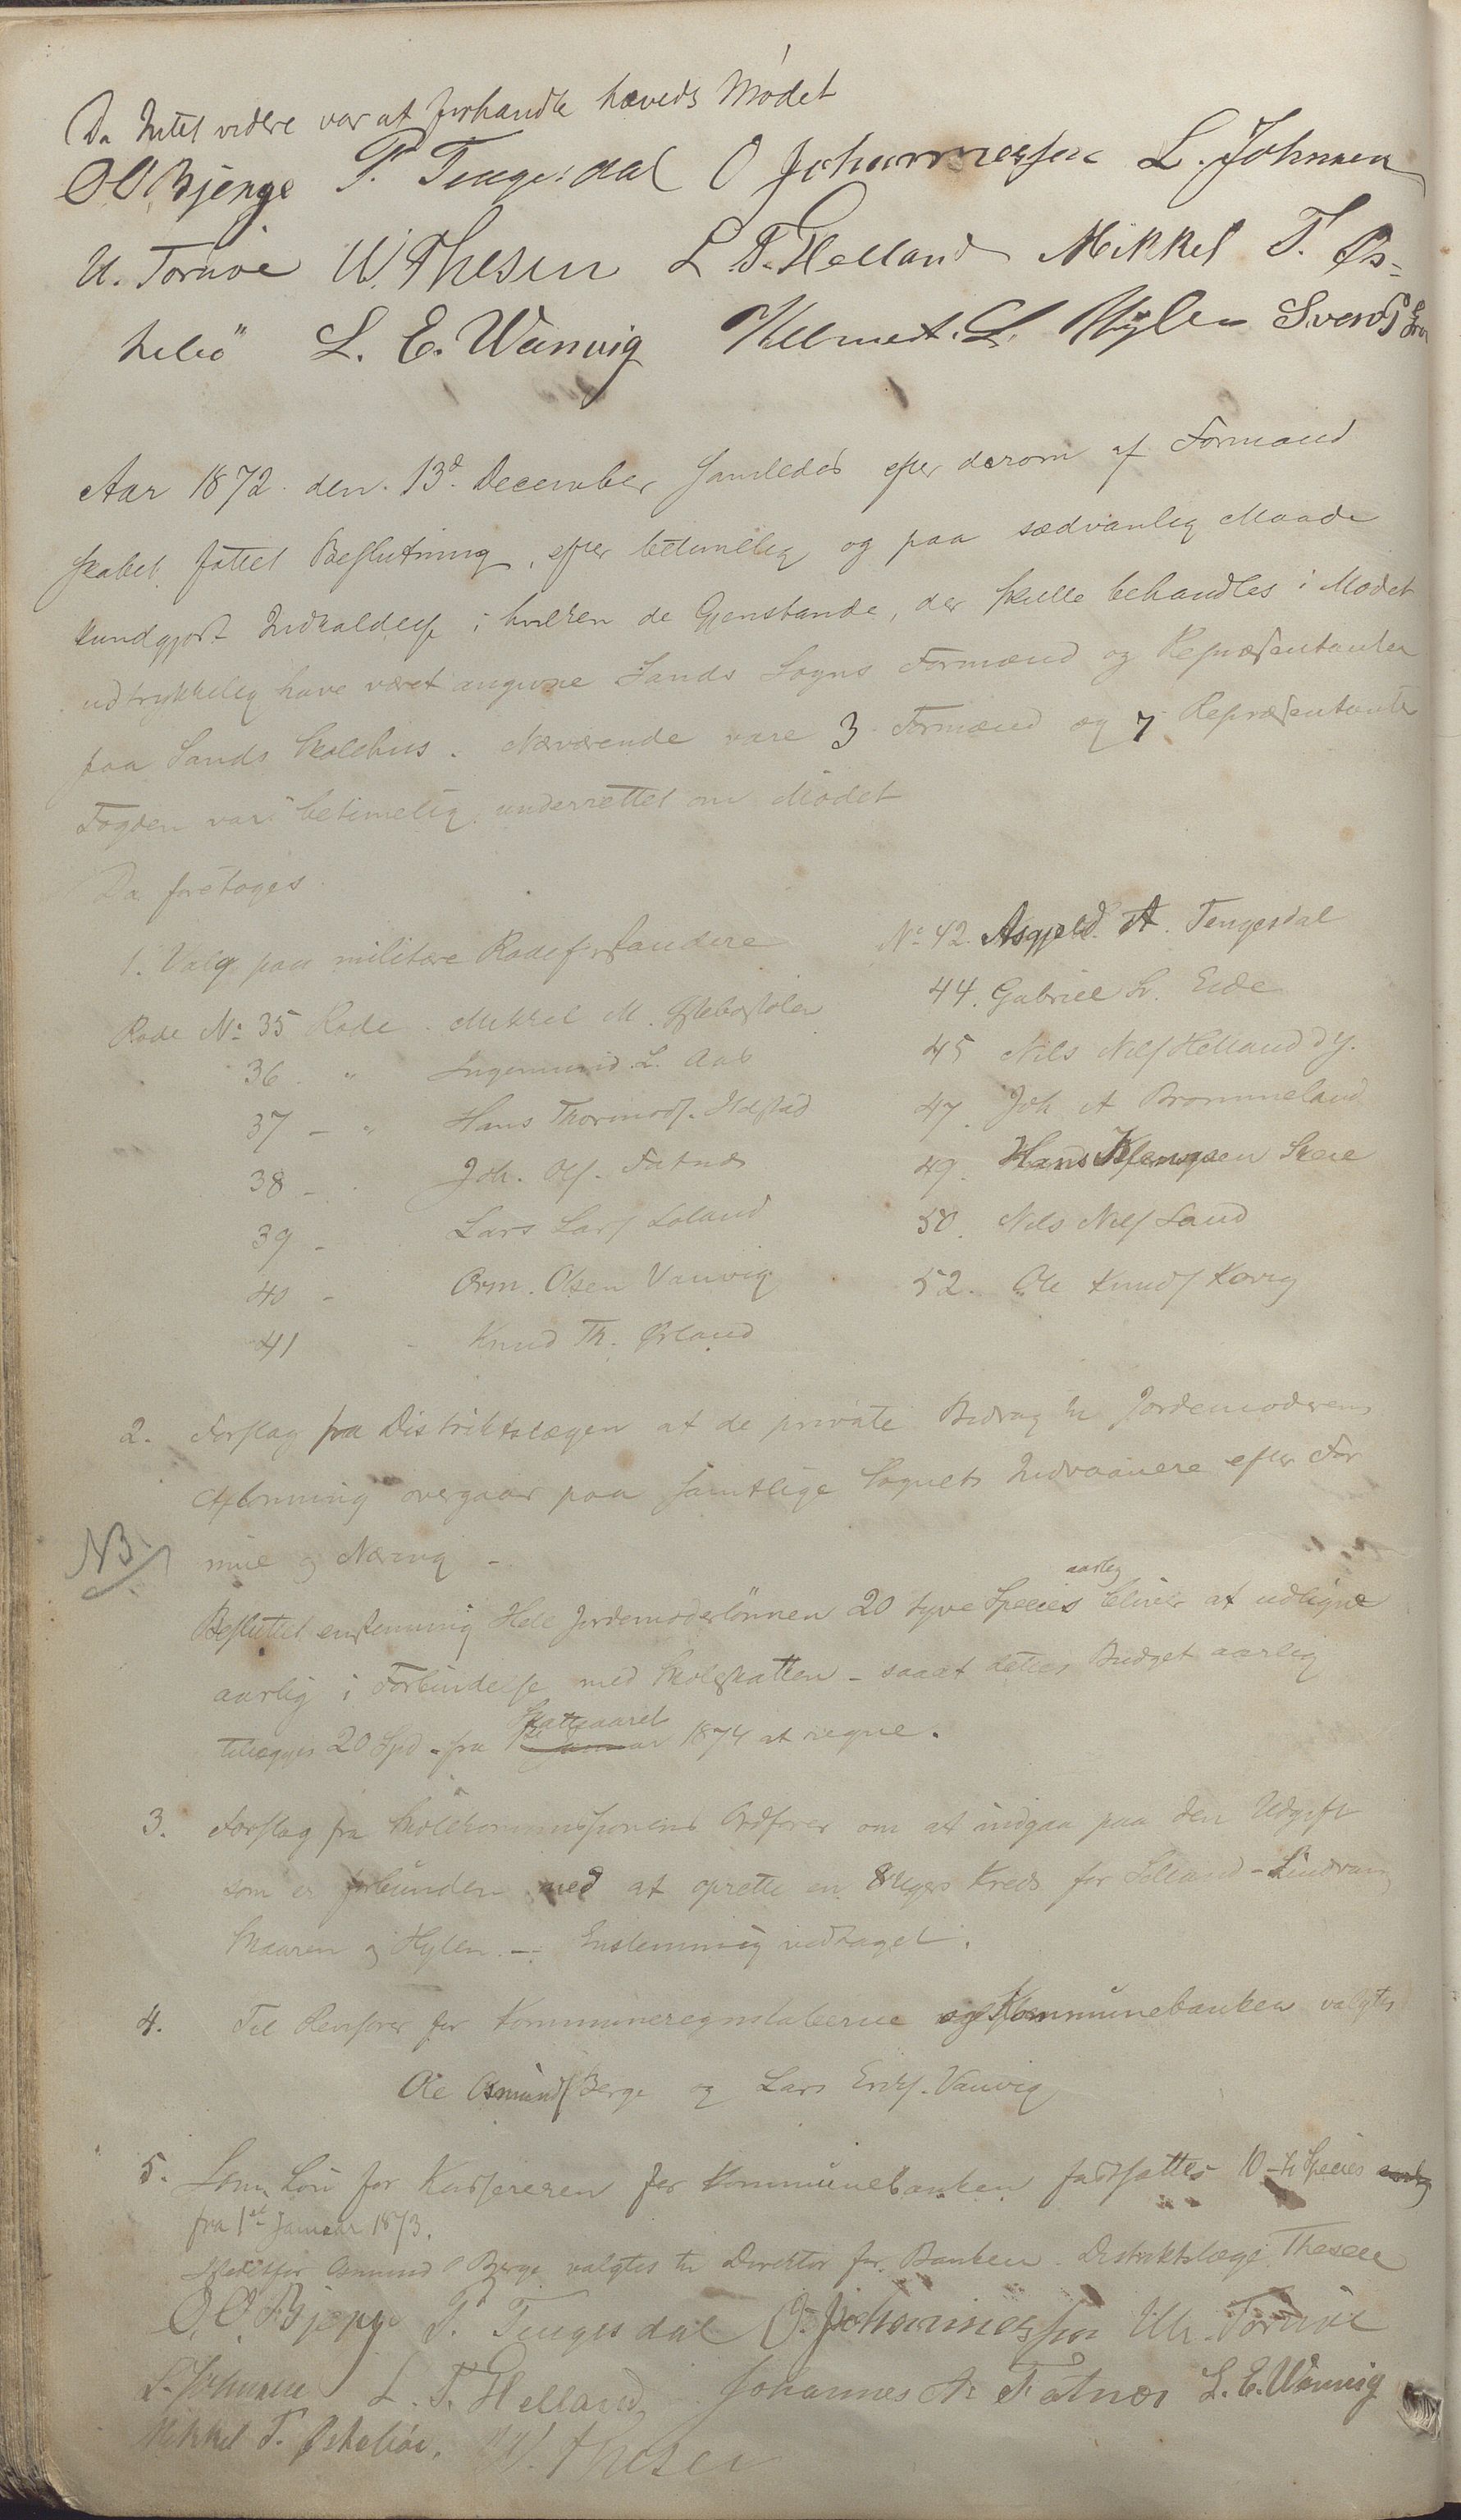 Da Intet videre var at forhandle hævedes Mødet
O O Bjerge P. Tengesdal O Johannessen L. Johnsen
U. Tornøe W. Thesen L. T. Helland Mikkel T. Øs-
hebø L. E. Wanvig L. Hylen
Aar 1872 den 13d December samledes efter derom af Formand
skabet fattet Beslutning, efter betimelig og paa sædvanlig Maade
kundgjort Indkaldelse i hvilken de Gjenstande, der skulle behandles i Mødet
udtrykkelig have været angivne Sands Sogns Formænd og Repræsentanter
paa Sands Skolehus. Nærværende vare 3 Formænd og 7 Repræsentanter
Fogden var betimelig underrettet om Mødet
Da foretoges
1. Valg paa militære Rodeforstandere
Rode No 35 Rode Mikkel M.
36 " Ingemund L. Aab
37 - " Hans Thormods.
38 - Joh. Ols. Fatnæs
39 - Lars Lars Løland
40 - Orm. Olsen Vanvig
41 Knud Th. Ørland
No 42. Asgjeld A. Tengesdal
44. Gabriel Eide
45 Nils Nils Helland d y.
47. Joh A Brommeland
49. Hans Skeie
50. Nils Nils Sand
52. Ole Knuds Kovig
2. Forslag fra Distriktslægen at de private Bidrag til Jordemoderens
Aflønning overgaar paa samtlige Sognets Indvaanere efter For
mue og Næring -
NB.
aarlig
Besluttet enstemmig Hele Jordemoderlønnen 20 tyve Species bliver at udligne
aarlig i Forbindelse med Skoleskatten - saaat dettes Budget aarlig
Skatteaaret
tillægges 20 Spd - fra 1ste Januar 1874 at regne.
3. Forslag fra Skolekommissionens Ordfører om at indgaa paa den Udgift
som er forbunden med at oprette en 8 Ugers Kreds for Lølland - Lindvang
Skaaren og Hylen. - Enstemmig vedtaget.
4. Til Revisorer for Kommuneregnskaberne og Kommunebanken valgtes
Ole Asmunds Berge og Lars Eriks. Vanvig
5. Som Løn for Kassereren for Kommunebanken fastsattes 10 - ti Species
fra 1st Januar 1873.
Osmund O Berge valgtes til Direktør for Banken. Distriktslæge Thesen
O. O. Bjerge P. Tengesdal O. Johannessen U. Tornøe
L. Johnsen L. T. Helland Johannes A. Fatnæs L. E. Wanvig
Mikkel T. Øshebøe. W. Thesen